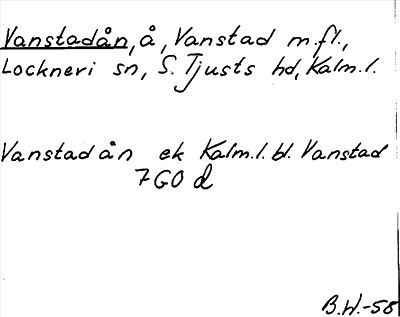 Vanstadån, å, Vanstad m.fl.,
Lockneri sn, S. Tjusts hd, Kalm.l.
Vanstadån ek Kalm.l. bl. Vanstad
7GO d
B.W.-58